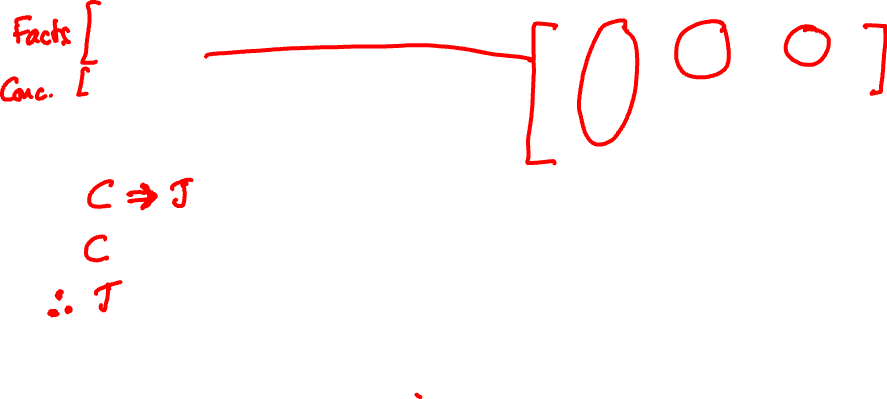 Facts [
Conc. [
C ⇒ J
C
∴ J